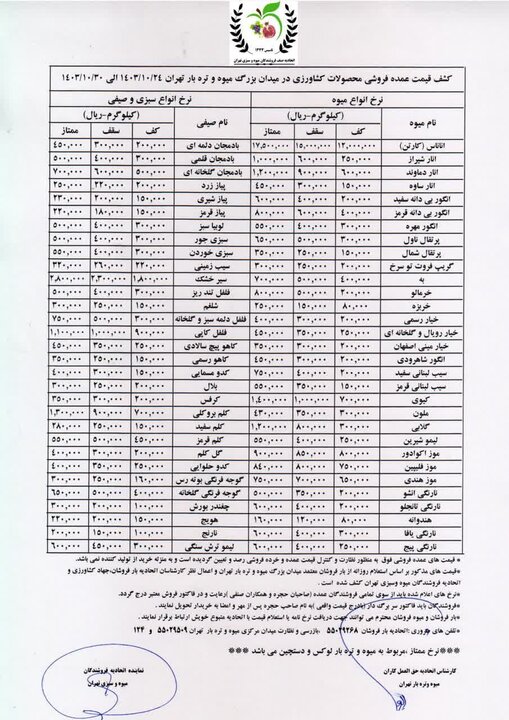 تاسیس ۱۳۴۴
اتحادیه صنف فروشندگان میوه و سبزی تهران
کشف قیمت عمده فروشی محصولات کشاورزی در میدان بزرگ میوه و تره بار تهران ۱۴۰۳/۱۰/۲۴ الی ۱۴۰۳/۱۰/۳۰
نرخ انواع میوه نرخ انواع سبزی و صیفی
نام میوه (کیلوگرم-ریال) نام صیفی (کیلوگرم-ریال)
کف سقف ممتاز کف سقف ممتاز
اناناس (کارتن) ۱۲,۰۰۰,۰۰۰ ۱۵,۰۰۰,۰۰۰ ۱۷,۵۰۰,۰۰۰ بادمجان دلمه ای ۲۰۰,۰۰۰ ۳۰۰,۰۰۰ ۴۵۰,۰۰۰
انار شیراز ۲۵۰,۰۰۰ ۶۰۰,۰۰۰ ۱,۰۰۰,۰۰۰ بادمجان قلمی ۳۰۰,۰۰۰ ۴۰۰,۰۰۰ ۵۰۰,۰۰۰
انار دماوند ۶۰۰,۰۰۰ ۹۰۰,۰۰۰ ۱,۲۰۰,۰۰۰ بادمجان گلخانه ای ۵۰۰,۰۰۰ ۶۰۰,۰۰۰ ۷۰۰,۰۰۰
انار ساوه ۱۵۰,۰۰۰ ۳۰۰,۰۰۰ ۴۵۰,۰۰۰ پیاز زرد ۲۰۰,۰۰۰ ۲۲۰,۰۰۰ ۲۵۰,۰۰۰
انگور بی دانه سفید ۲۰۰,۰۰۰ ۴۰۰,۰۰۰ ۶۰۰,۰۰۰ پیاز شیری ۱۵۰,۰۰۰ ۲۰۰,۰۰۰ ۲۳۰,۰۰۰
انگور بی دانه قرمز ۴۰۰,۰۰۰ ۶۰۰,۰۰۰ ۸۰۰,۰۰۰ پیاز قرمز ۱۵۰,۰۰۰ ۱۸۰,۰۰۰ ۲۲۰,۰۰۰
انگور مهره ۳۰۰,۰۰۰ ۴۰۰,۰۰۰ ۵۵۰,۰۰۰ لوبیا سبز ۳۰۰,۰۰۰ ۴۰۰,۰۰۰ ۵۵۰,۰۰۰
پرتقال ناول ۳۰۰,۰۰۰ ۵۰۰,۰۰۰ ۶۵۰,۰۰۰ سبزی جور ۳۰۰,۰۰۰ ۴۰۰,۰۰۰ ۵۰۰,۰۰۰
پرتقال شمال ۱۵۰,۰۰۰ ۲۵۰,۰۰۰ ۳۵۰,۰۰۰ سبزی خوردن ۳۰۰,۰۰۰ ۴۰۰,۰۰۰ ۵۵۰,۰۰۰
گریپ فروت تو سرخ ۲۰۰,۰۰۰ ۲۵۰,۰۰۰ ۳۵۰,۰۰۰ سیب زمینی ۲۲۰,۰۰۰ ۲۶۰,۰۰۰ ۳۲۰,۰۰۰
به ۴۰۰,۰۰۰ ۵۰۰,۰۰۰ ۷۰۰,۰۰۰ سیر خشک ۱,۸۰۰,۰۰۰ ۲,۳۰۰,۰۰۰ ۲,۸۰۰,۰۰۰
خرمالو ۲۰۰,۰۰۰ ۵۰۰,۰۰۰ ۸۰۰,۰۰۰ فلفل تند ریز ۳۰۰,۰۰۰ ۴۰۰,۰۰۰ ۵۰۰,۰۰۰
خربزه ۸۰,۰۰۰ ۱۵۰,۰۰۰ ۲۵۰,۰۰۰ شلغم ۱۵۰,۰۰۰ ۲۵۰,۰۰۰ ۳۰۰,۰۰۰
خیار رسمی ۲۰۰,۰۰۰ ۳۰۰,۰۰۰ ۴۰۰,۰۰۰ فلفل دلمه سبز و گلخانه ۳۰۰,۰۰۰ ۵۰۰,۰۰۰ ۷۵۰,۰۰۰
خیار رویال و گلخانه ای ۲۵۰,۰۰۰ ۳۵۰,۰۰۰ ۴۵۰,۰۰۰ فلفل کاپی ۹۰۰,۰۰۰ ۱,۰۰۰,۰۰۰ ۱,۱۰۰,۰۰۰
خیار مینی اصفهان ۲۰۰,۰۰۰ ۲۵۰,۰۰۰ ۳۵۰,۰۰۰ کاهو پیچ سالادی ۲۵۰,۰۰۰ ۳۵۰,۰۰۰ ۴۵۰,۰۰۰
انگور شاهرودی ۲۵۰,۰۰۰ ۳۰۰,۰۰۰ ۴۰۰,۰۰۰ کاهو رسمی ۱۵۰,۰۰۰ ۲۵۰,۰۰۰ ۳۵۰,۰۰۰
سیب لبنانی سفید ۲۰۰,۰۰۰ ۴۰۰,۰۰۰ ۷۵۰,۰۰۰ کدو مسمایی ۲۰۰,۰۰۰ ۳۰۰,۰۰۰ ۴۰۰,۰۰۰
سیب لبنانی قرمز ۱۵۰,۰۰۰ ۳۵۰,۰۰۰ ۵۵۰,۰۰۰ بلال ۲۰۰,۰۰۰ ۲۵۰,۰۰۰ ۳۰۰,۰۰۰
کیوی ۷۰۰,۰۰۰ ۱,۰۰۰,۰۰۰ ۱,۴۰۰,۰۰۰ کرفس ۲۰۰,۰۰۰ ۳۰۰,۰۰۰ ۳۵۰,۰۰۰
ملون ۳۰۰,۰۰۰ ۳۵۰,۰۰۰ ۴۳۰,۰۰۰ کلم بروکلی ۷۰۰,۰۰۰ ۹۰۰,۰۰۰ ۱,۳۰۰,۰۰۰
گلابی ۳۰۰,۰۰۰ ۸۰۰,۰۰۰ ۱,۲۰۰,۰۰۰ کلم سفید ۱۵۰,۰۰۰ ۲۵۰,۰۰۰ ۲۸۰,۰۰۰
لیمو شیرین ۲۵۰,۰۰۰ ۴۰۰,۰۰۰ ۵۵۰,۰۰۰ کلم قرمز ۴۰۰,۰۰۰ ۵۰۰,۰۰۰ ۵۵۰,۰۰۰
موز اکوادور ۸۰۰,۰۰۰ ۸۵۰,۰۰۰ ۹۰۰,۰۰۰ گل کلم ۲۰۰,۰۰۰ ۳۰۰,۰۰۰ ۴۰۰,۰۰۰
موز فلیپین ۷۵۰,۰۰۰ ۸۰۰,۰۰۰ ۸۴۰,۰۰۰ کدو حلوایی ۲۵۰,۰۰۰ ۳۰۰,۰۰۰ ۳۵۰,۰۰۰
موز هندی ۶۵۰,۰۰۰ ۷۰۰,۰۰۰ ۷۵۰,۰۰۰ گوجه فرنگی بوته رس ۱۶۰,۰۰۰ ۲۵۰,۰۰۰ ۳۰۰,۰۰۰
نارنگی انشو ۲۰۰,۰۰۰ ۴۰۰,۰۰۰ ۵۰۰,۰۰۰ گوجه فرنگی گلخانه ۴۰۰,۰۰۰ ۵۰۰,۰۰۰ ۶۵۰,۰۰۰
نارنگی تانجلو ۲۰۰,۰۰۰ ۴۰۰,۰۰۰ ۶۰۰,۰۰۰ چغندر بورش ۲۰۰,۰۰۰ ۲۵۰,۰۰۰ ۳۰۰,۰۰۰
هندوانه ۸۰,۰۰۰ ۱۲۰,۰۰۰ ۱۶۰,۰۰۰ هویج ۱۵۰,۰۰۰ ۲۰۰,۰۰۰ ۲۲۰,۰۰۰
نارنگی یافا ۳۰۰,۰۰۰ ۴۰۰,۰۰۰ ۶۰۰,۰۰۰ نارنج ۱۵۰,۰۰۰ ۲۰۰,۰۰۰ ۲۲۰,۰۰۰
نارنگی پیج ۲۵۰,۰۰۰ ۴۰۰,۰۰۰ ۶۰۰,۰۰۰ لیمو ترش سنگی ۳۰۰,۰۰۰ ۴۵۰,۰۰۰ ۶۰۰,۰۰۰
* قیمت های عمده فروشی فوق به منظور نظارت و کنترل قیمت عمده و خرده فروشی رصد و تعیین گردیده است و به منزله خرید از تولید کننده نمی باشد.
* قیمت های مذکور بر اساس استعلام روزانه از بار فروشان معتمد میدان بزرگ میوه و تره بار تهران و اعمال نظر کارشناسان اتحادیه بار فروشان،جهاد کشاورزی و اتحادیه فروشندگان میوه وسبزی تهران کشف شده است .
*نرخ های اعلام شده باید از سوی تمامی فروشندگان عمده (صاحبان حجره و همکاران صنفی )رعایت و در فاکتور فروش معتبر درج گردد.
*فروشندگان باید فاکتور سر برگ دار (بادرج قیمت واقعی )به نام صاحب حجره پس از مهر و امضا به خریدار تحویل نمایند.
*بار فروشان و میوه فروشان محترم می توانند جهت دریافت نرخ نامه با استعلام با اتحادیه متبوع خویش ارتباط برقرار نمایند .
*تلفن های ضروری: اتحادیه بار فروشان ۵۵۰۲۹۲۶۸ ،بازرسی و نظارت میدان مرکزی میوه و تره بار تهران ۵۵۰۲۹۵۰۹ و ۱۲۴
***نرخ ممتاز ،مربوط به میوه و تره بار لوکس و دستچین می باشد ***
کارشناس اتحادیه حق العمل کاران نماینده اتحادیه فروشندگان
میوه وتره بار تهران میوه و سبزی تهران